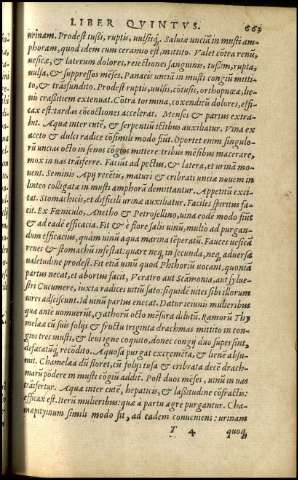 LIBER QVINTVS. 663
urinam. Prodest tußi, ruptis, vulsisq́. Saluiæ unciæ in musti am-
phoram, quod idem cum ceramio est, mittito. Valet cõtra renũ,
uesicæ, & laterum dolores, reiectiones sanguinis, tußim, rupta,
uulsa, & suppressos mẽses. Panacis unciã in musti congiũ mitti-
to, & trãsfundito. Prodest ruptis, uulsis, cõtusis, orthopnœæ, lie-
nis crassitiem extenuat. Cõtra tormina, coxendicũ dolores, effi-
cax est: tardas cõcoctiones accelerat. Menses & partus extra-
hit. Aquæ inter cutẽ, & serpentiũ ictibus auxiliatur. Vina ex
aceto & dulci radice cõsimili modo fiũt. Oportet enim singulo-
rũ uncias octo in senos cõgios mittere tribus mẽsibus macerare,
mox in uas trãsferre. Faciut ad pectus, & latera, et urinã mo-
uent. Seminis Apij recẽtis, maturi & cribrati uncia nouem in
linteo colligata in musti amphorã demittantur. Appetitũ exci-
tat. Stomachicis, et difficili urinæ auxiliatur. Faciles spiritus fa-
cit. Ex Fœniculo, Anetho & Petroselino, uina eode modo fiũt
& ad eadẽ efficacia. Fit & è flore salis uinũ, multo ad purgan-
dum efficatius, quàm uinũ aqua marina tẽperatũ. Fauces uesicã
renes & stomachũ infestat. quare neq; in secunda, neq; aduersa
ualetudine prodest. Fit etiã uinũ quod Phthoriũ uocant, quoniã
partus necat, et abortus facit, Veratro aut Scãmonia, aut syluе-
stri Cucumere, iuxta radices uitiũ sato: siquidẽ uites sibi illorum
uires adsciscunt. Id uinũ partus enecat. Datur ieiunis mulieribus
quæ ante uomuerũt, cyathorũ octo mẽsura dilutũ. Ramorũ Thy
melææ cũ suis folijs & fructu triginta drachmas mittito in con-
gios tres musti, & leni igne coquito, donec congij duo supersint,
defæcatũq́; recõdito. Aquosa purgat excremẽta, & lienẽ absu-
mit. Chamelææ dũ floret, cũ folijs tusæ & cribratæ decẽ drach-
marũ põdere in musti cõgiũ addit. Post duos mẽses, uinũ in uas
trãsfertur. Aquæ inter cutẽ, hepaticis, & lassitudine cõfractis:
efficax est. Iterũ mulieribus: quæ à partu ægre purgantur. Cha-
mæpityinum simili modo fit, ad eadem conueniens: urinam
T 4 quoq́;